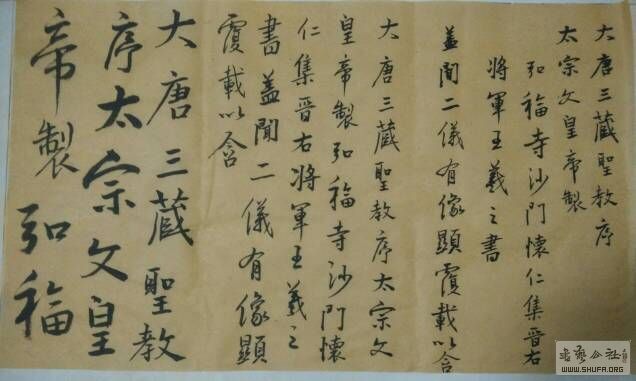 大唐三藏聖教序
太宗文皇帝製
弘福寺沙門懷仁集晉右
將軍王羲之書
蓋聞二儀有像顯覆載以含
大唐三藏聖教序太宗文
皇帝製弘福寺沙門懷
仁集晉右將軍王羲之
書蓋聞二儀有像顯
覆載以含
大唐三藏聖教
序太宗文皇
帝製弘福
书艺公社
WWW.SHUFA.ORG